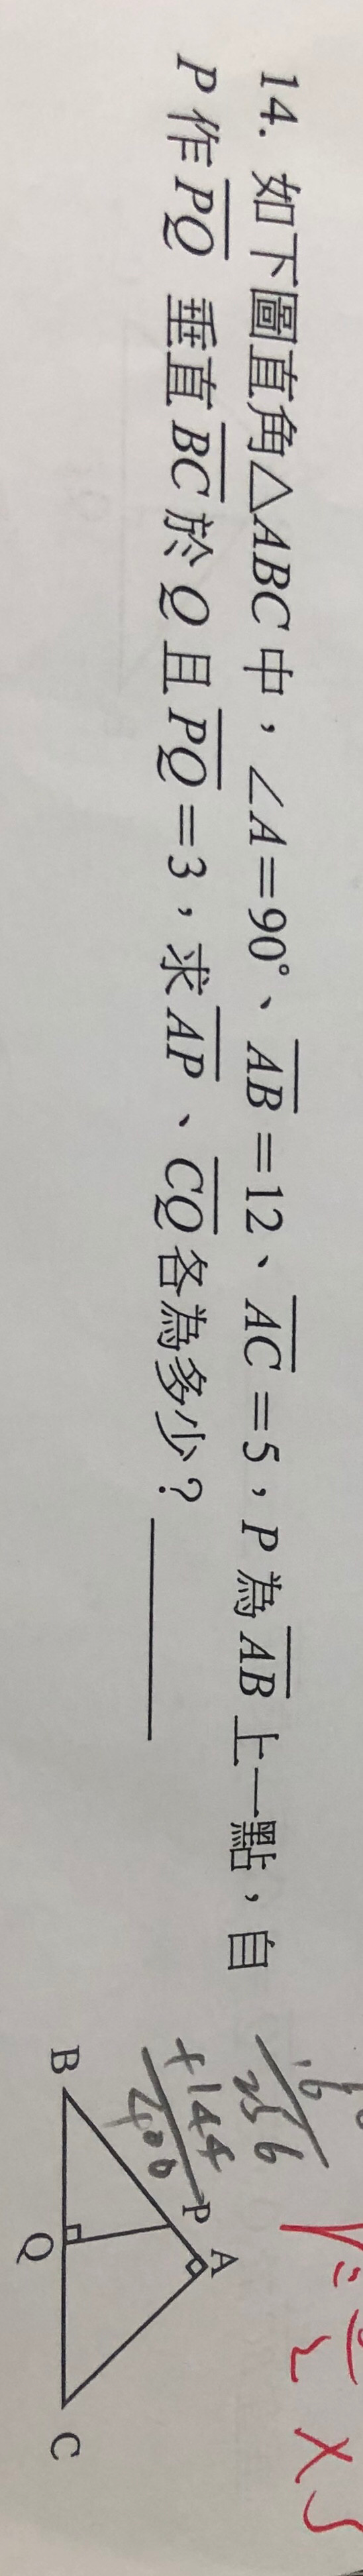 14. 如下圖直角△ABC中，∠A=90°、AB=12、AC=5，P為AB上一點，自
P作PQ 垂直BC於Q且PQ=3，求AP、CQ各為多少？
256
+144
400
A
P
B
Q
C